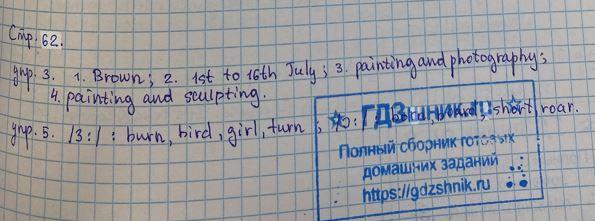 Стр. 62.
упр. 3. 1. Brown; 2. 1st to 16th July; 3. painting and photography;
4. painting and sculpting.
упр. 5. /3:/: burn, bird, girl, turn; /ɔ:/: board, short, roar.
ГДЗшник.ru
Полный сборник готовых
домашних заданий
https://gdzshnik.ru